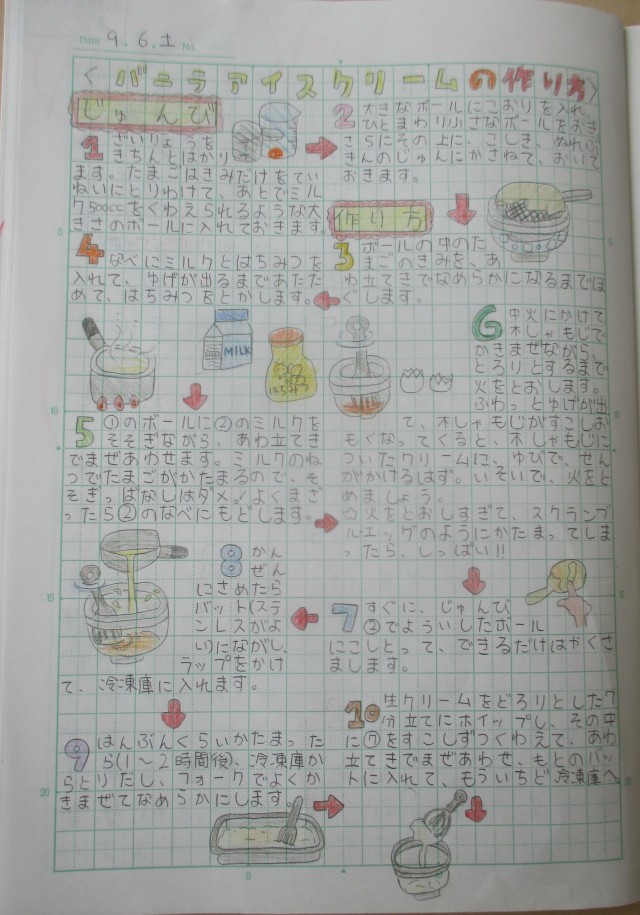 Date 9.6.土 No.
〈バニラアイスクリームの作り方〉
じゅんび
1 ざいりょうを
きちんとはかり
ます。たまごはきみだけをてい
ねいにとりわけて、あとでミル
ク500ccをくわえられるような大
きさのボールに入れておきます。
2 大きなボールにこおりを入れ、
ひとまわり小さなボールをおき
さらにその上に、こしき、ぬれふ
きんのじゅんにかさねて、おいて
おきます。
作り方
3 ボールの中のた
まごのきみを、あ
わ立てきでなめらかになるまでほ
ぐします。
4 なべにミルクとはちみつを
入れて、ゆげが出るまであたた
めて、はちみつをとかします。
MILK
はちみつ
5 ①のボールに②のミルクを
そそぎながら、あわ立てき
でまぜあわせます。ミルクのね
つでたまごがかたまるので、そ
そぎっぱなしはダメ!よくまざ
ったら②のなべにもどします。
6 中火にかけて
木しゃもじで
かきまぜながら、
とろりとするまで
火をとおします。
ふわっとゆげが出
て、木しゃもじがすこしお
もくなってくると、木しゃもじに
ついたクリームに、ゆびで、せん
がかけるはず。いそいで、火をと
めましょう。
☆火をとおしすぎて、スクランブ
ルエッグのようにかたまってしま
ったら、しっぱい!!
7 すぐに、じゅんび
②でよういしたボール
にこしとって、できるだけはやくさ
まします。
8 かん
ぜん
にさめたら
バット(ステ
ンレスがよ
い)にながし、
ラップをかけ
て、冷凍庫に入れます。
9 はんぶんくらいかたまった
ら(1〜2時間後)、冷凍庫か
らとりだし、フォークでよくか
きまぜてなめらかにします。
10 生クリームをどろりとした7
分立てにホイップし、その中
に⑦をすこしずつくわえて、あわ
立てきでまぜあわせ、もとのバッ
トに入れて、もういちど冷凍庫へ